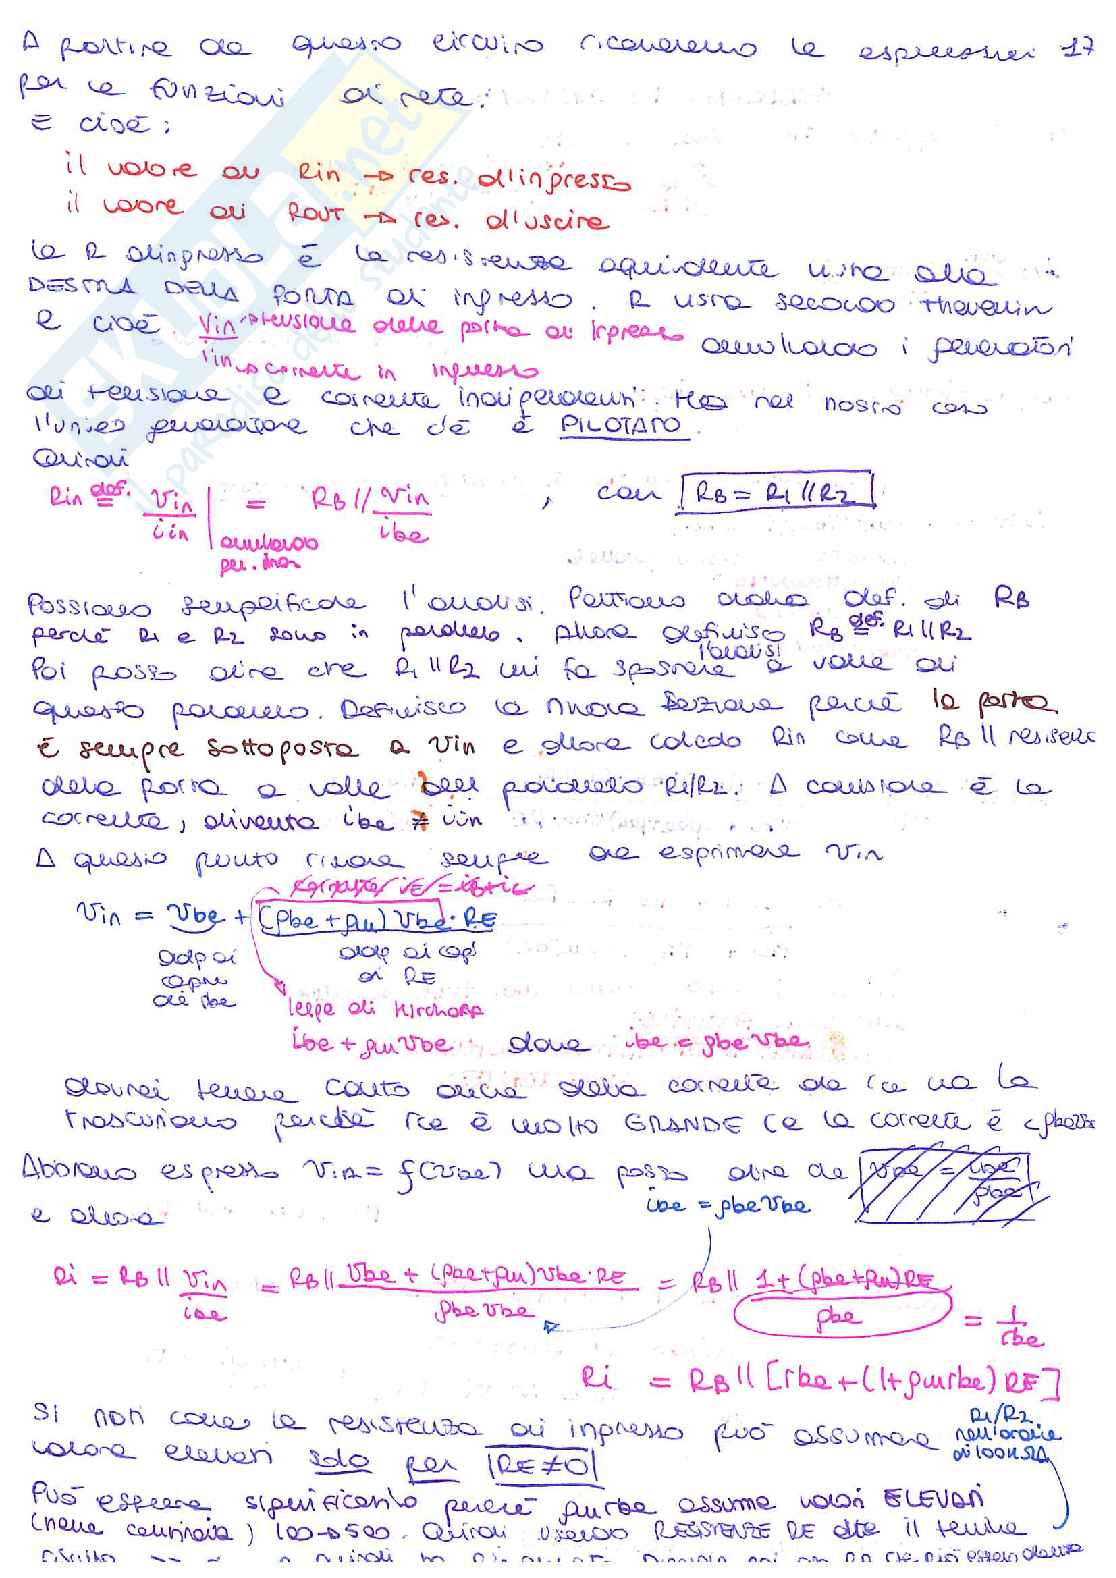 A partire da questo circuito ricaveremo le espressioni 17
per le funzioni di rete.
E cioè:
il valore di Rin → res. d'ingresso
il valore di ROUT → res. d'uscita
la R d'ingresso è la resistenza equivalente vista alla
DESTRA DELLA PORTA di ingresso. R vista secondo thevenin
e cioè Vin → tensione della porta di ingresso annullando i generatori
iin → corrente in ingresso
di tensione e corrente indipendenti. Ma nel nostro caso
l'unico generatore che c'è è PILOTATO.
Quindi
Rin def.= Vin/iin | annullando gen. ind. = RB // Vin/ibe , con RB = R1 // R2
Possiamo semplificare l'analisi. Partiamo dalla def. di RB
perché R1 e R2 sono in parallelo. Allora definisco RB def.= R1 // R2
Poi posso dire che R1 // R2 mi fa spostare l'analisi a valle di
questo parallelo. Definisco la nuova sezione perché la porta
è sempre sottoposta a Vin e allora calcolo Rin come RB // resistenza
della porta a valle del parallelo R1/R2. A cambiare è la
corrente, diventa ibe ≠ iin
A questo punto rimane sempre da esprimere Vin
Vin = Vbe + (gbe + gm) Vbe · RE
ddp ai capi di rbe
ddp ai capi di RE
legge di Kirchoff
ibe + gmVbe dove ibe = gbeVbe
dovrei tenere conto anche della corrente da rce ma la
trascuriamo perché rce è molto GRANDE (e la corrente è
Abbiamo espresso Vin = f(Vbe) ma posso dire che Vbe = ibe/gbe
ibe = gbeVbe
e allora
Ri = RB // Vin/ibe = RB // Vbe + (gbe+gm)Vbe·RE / gbeVbe = RB // 1 + (gbe+gm)RE / gbe = 1/rbe
Ri = RB // [rbe + (1 + gmrbe) RE]
Si noti come la resistenza di ingresso può assumere
R1/R2 nell'ordine di 100KΩ
valori elevati solo per RE≠0
Può essere significativo perché gmrbe assume valori ELEVATI
100→500. Quindi usando RESISTENZE RE il termine